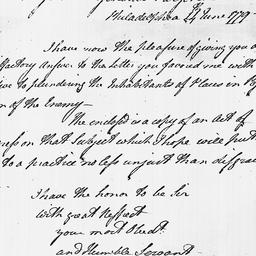 Philadelphia 24th June 1779 -
I have now the pleasure of giving you a
factory Answer to the letter you favored me with
ive to plundering the Inhabitants of Places in
on of the Enemy -
The enclosed is a copy of an Act of
ress on that subject which I hope will put
to a practice no less unjust than disgrac
I have the honor to be Sir
with great Respect
your most Obedt.
and Humble Servant -